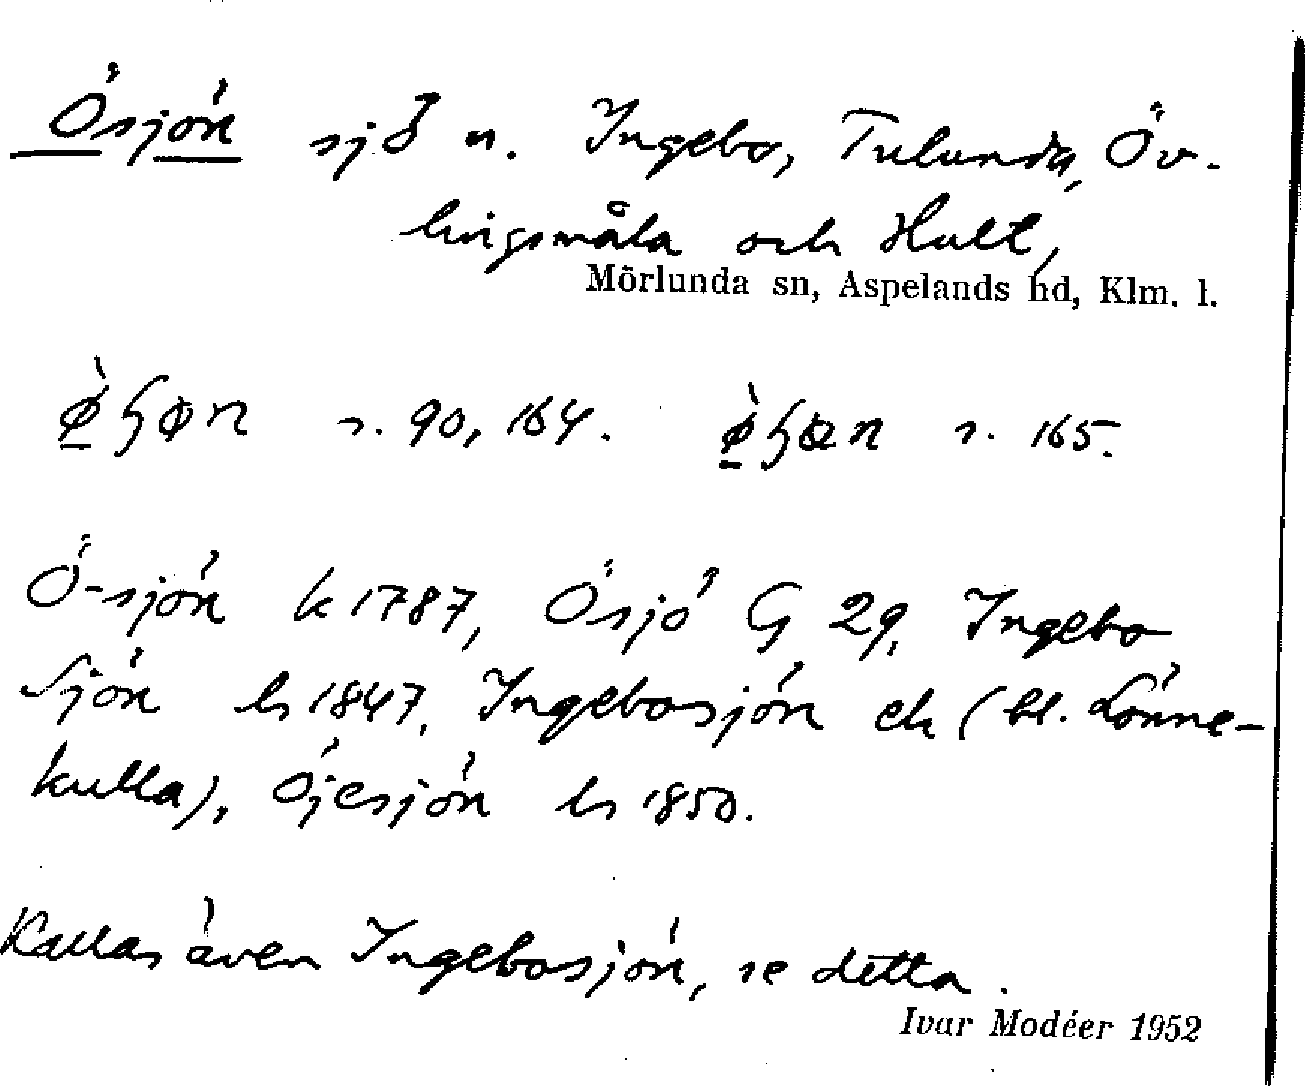 Ösjön sjö n. Ingebo, Tulunda, Öv-
lingsmåla och Hult,
Mörlunda sn, Aspelands hd, Klm. l.
s. 90, 164. s. 165.
Ö-sjön k 1787, Ösjö G 29, Ingebo
Sjön ls 1847, Ingebosjön ek (bl. Lönne-
kulla), Öjesjön ls 1850.
Kallas även Ingebosjön, se detta.
Ivar Modéer 1952